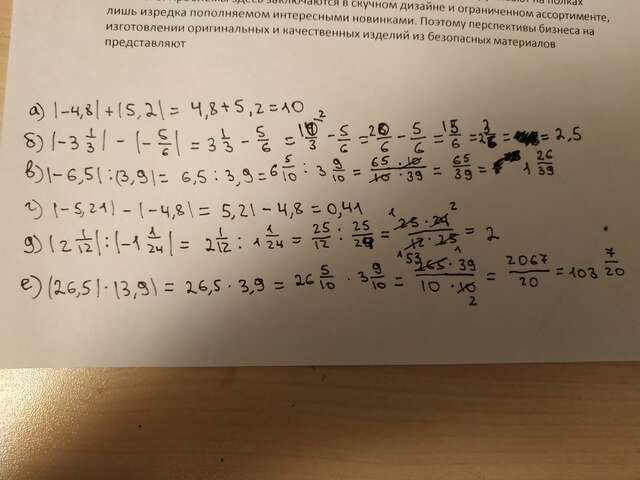 лишь изредка пополняемом интересными новинками. Поэтому перспективы бизнеса на
изготовлении оригинальных и качественных изделий из безопасных материалов
представляют
а) |-4,8|+|5,2|= 4,8+5,2=10
б) |-3 1/3| - |-5/6| = 3 1/3 - 5/6 = 10/3 - 5/6 = 20/6 - 5/6 = 15/6 = 2 3/6 = = 2,5
в) |-6,5| : |3,9| = 6,5 : 3,9 = 6 5/10 : 3 9/10 = 65·10/10·39 = 65/39 = 1 26/39
г) |-5,21| - |-4,8| = 5,21 - 4,8 = 0,41
д) |2 1/12| : |-1 1/24| = 2 1/12 : 1 1/24 = 25/12 : 25/24 = 25·24/12·25 = 2
е) |26,5| · |3,9| = 26,5 · 3,9 = 26 5/10 · 3 9/10 = 265·39/10·10 = 2067/20 = 103 7/20